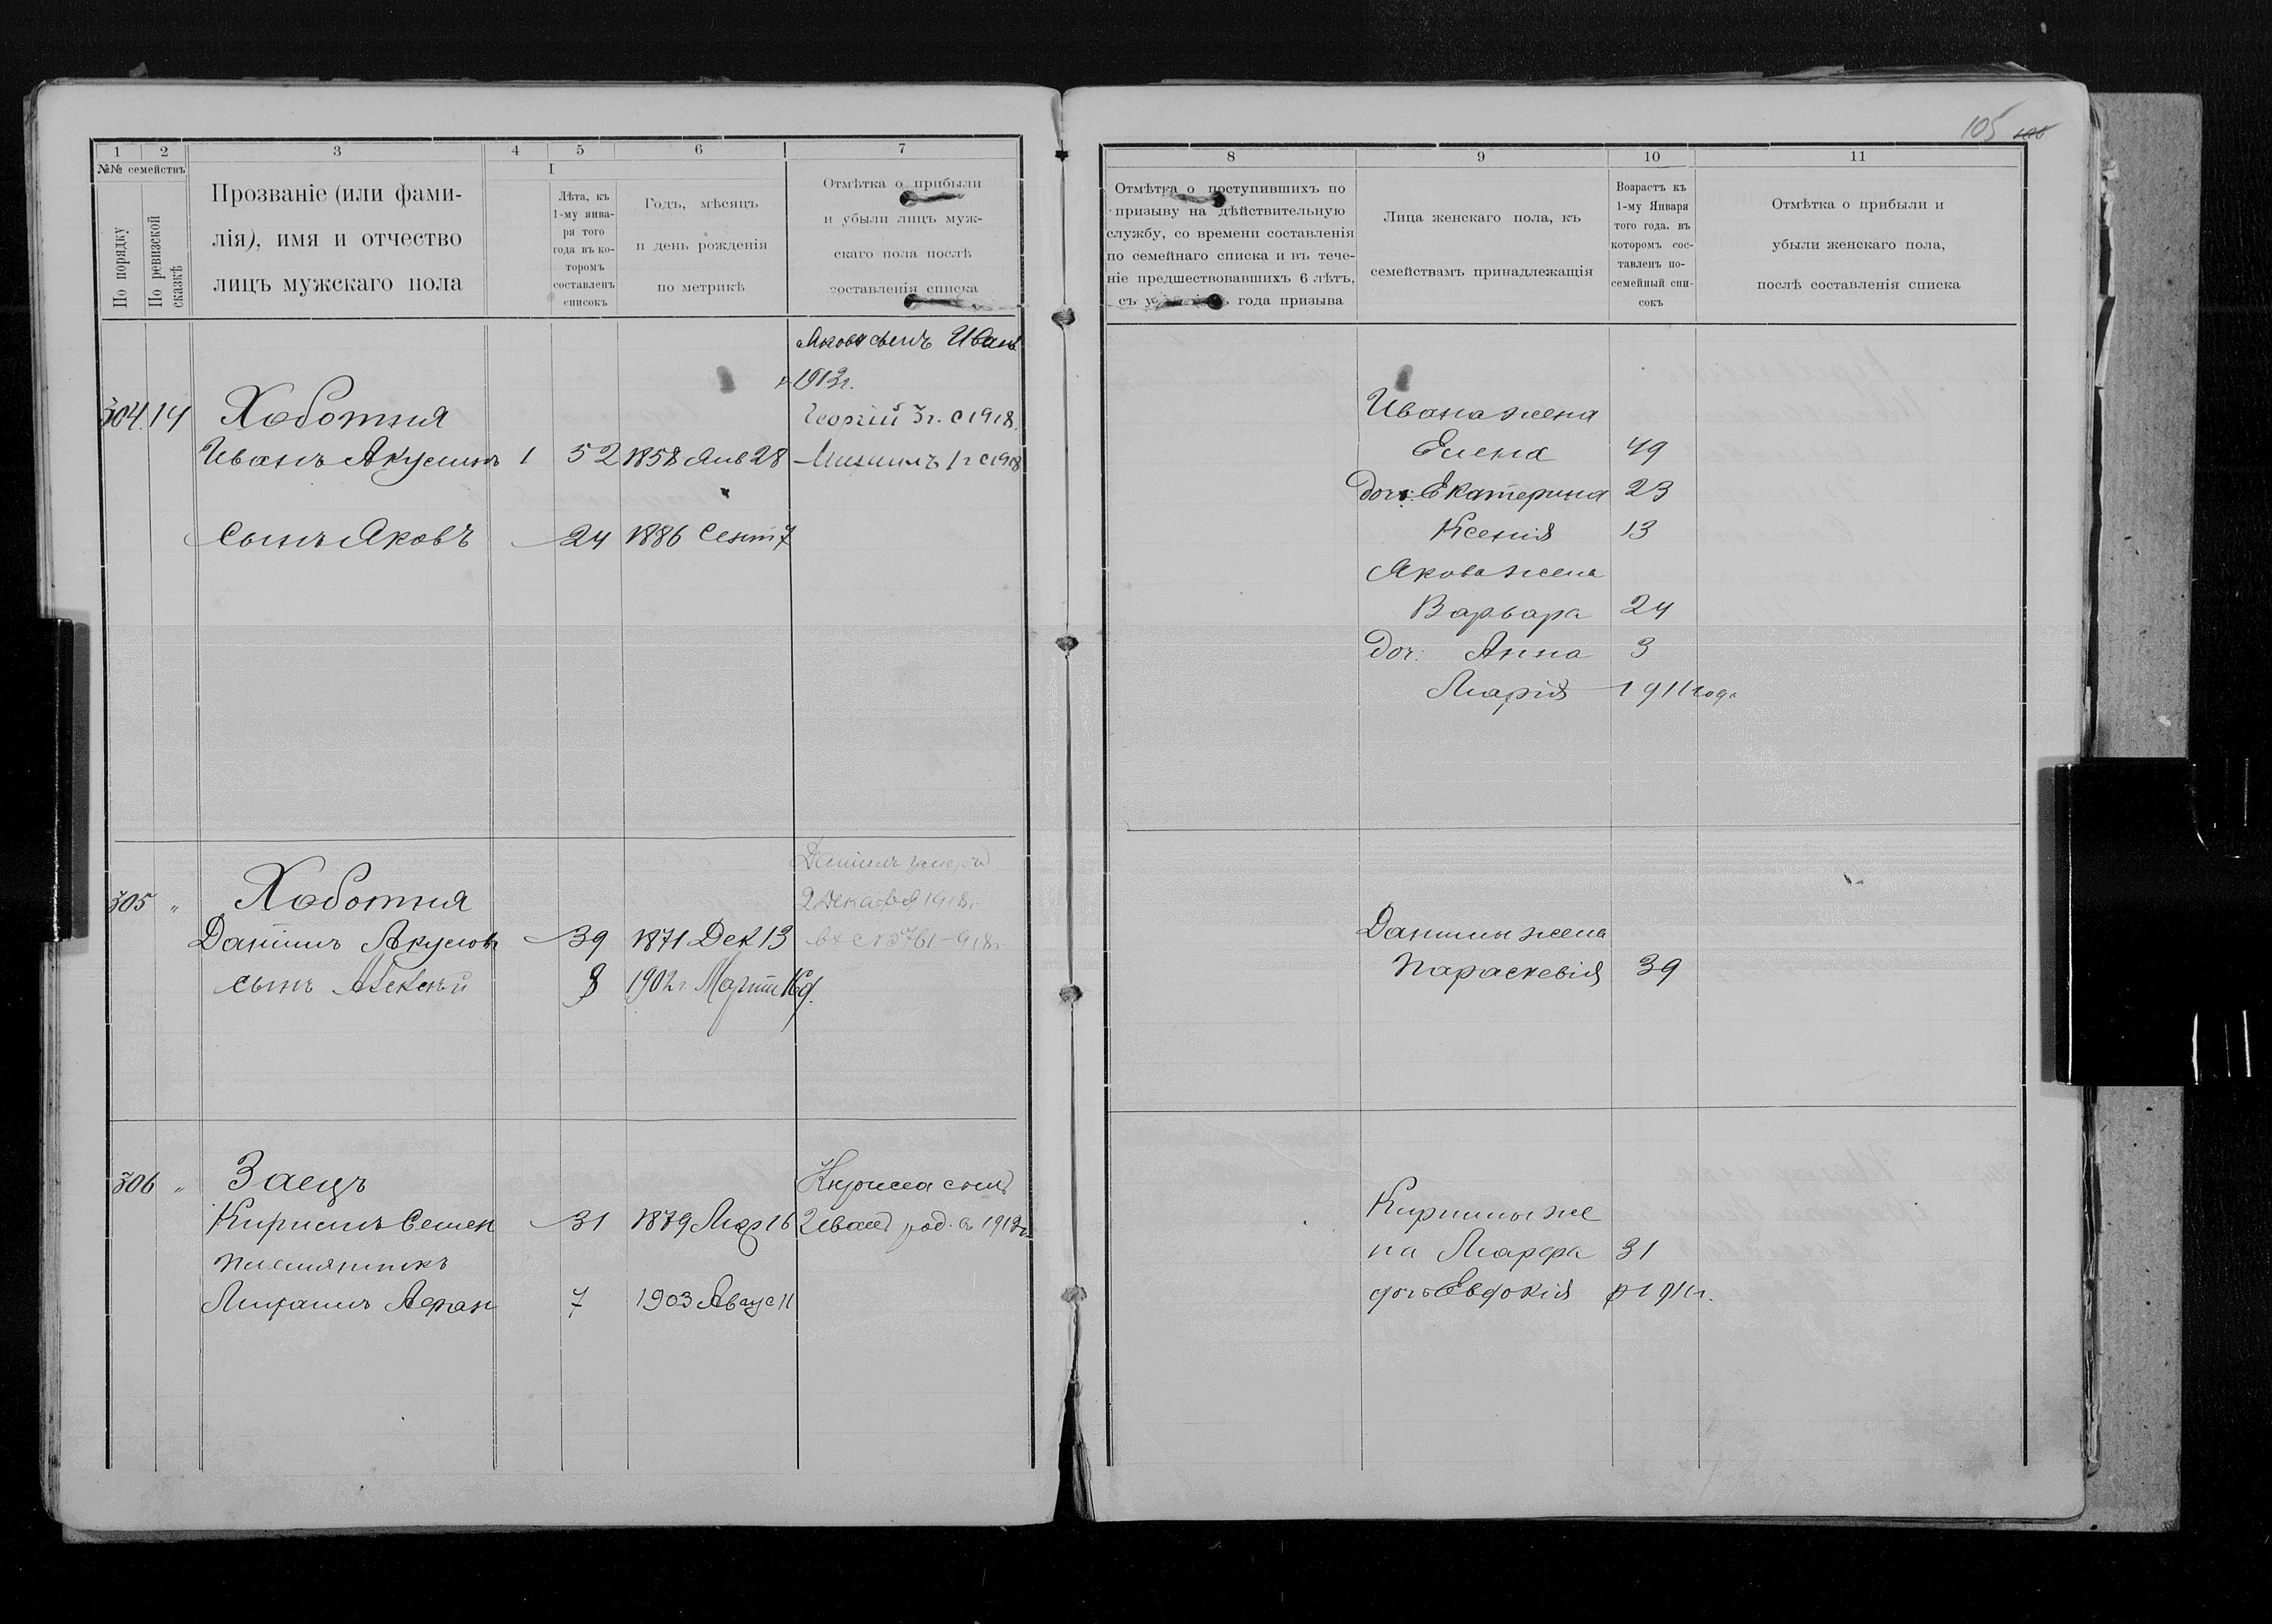 105
1 2 3 4 5 6 7
№№ семействъ
По порядку
По ревизской сказкѣ
Прозваніе (или фами-
лія), имя и отчество
лицъ мужскаго пола
I
Лѣта, къ
1-му янва-
ря того
года въ ко-
торомъ
составленъ
списокъ
Годъ, мѣсяцъ
и день рожденія
по метрикѣ
Отмѣтка о прибыли
и убыли лицъ муж-
скаго пола послѣ
составленія списка
Якова сынъ Иванъ
1912г.
304 14 Хоботня
Георгій 3г. с 1918.
Иванъ Акусинъ 1 52 1858 Янв 28
Михаилъ 1г с 1918
сынъ Яковъ 24 1886 Сент 7
Даніилъ умеръ
2 Декабря 1918г.
305 „ Хоботня
Даніилъ Акусовъ 39 1871 Дек 13
сынъ Алексѣй 8 1902г Марта 16 д.
306 „ Заецъ
Кирилла сынъ
Кирилъ Семен 31 1879 Мар 16 Иванъ род. в 1912г.
племянникъ
Митрофанъ 7 1903 Авгус 11
8 9 10 11
Отмѣтка о поступившихъ по
призыву на дѣйствительную
службу, со времени составленія
по семейнаго списка и въ тече-
ніе предшествовавшихъ 6 лѣтъ,
года призыва
Лица женскаго пола, къ
семействамъ принадлежащія
Возрастъ къ
1-му Января
того года. въ
которомъ сос-
тавленъ по-
семейный спи-
сокъ
Отмѣтка о прибыли и
убыли женскаго пола,
послѣ составленія списка
Ивана жена
Елена 49
доч: Екатерина 23
Ксенія 13
Якова жена
Варвара 24
Доч: Анна 3
Марія 1911 года
Даниилы жена
Параскевія 39
Кирилы же
на Марфа 31
дочь Евдокія р 1911г.